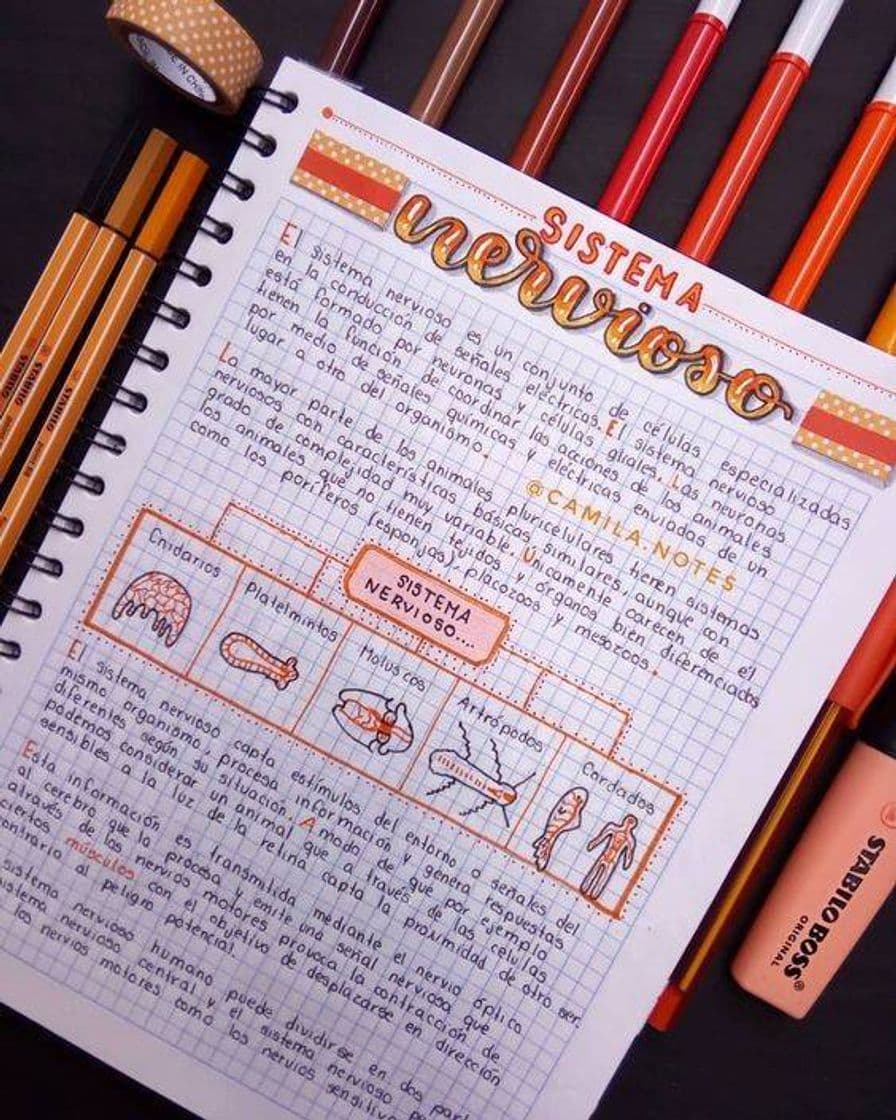 SISTEMA
nervioso
El sistema nervioso es un conjunto de células especializadas
en la conducción de señales eléctricas. El sistema nervioso
está formado por neuronas y células gliales. Las neuronas
tienen la función de coordinar las acciones de los animales
por medio de señales químicas y eléctricas enviadas de un
lugar a otro del organismo.
@CAMILA.NOTES
La mayor parte de los animales pluricelulares tienen sistemas
nerviosos con características básicas similares, aunque con
grado de complejidad muy variable. Únicamente carecen de él
los animales que no tienen tejidos y órganos bien diferenciados
como los poríferos (esponjas), placozoos y mesozoos.
SISTEMA
NERVIOSO....
Cnidarios
Platelmintos
Moluscos
Artrópodos
Cordados
El sistema nervioso capta estímulos del entorno o señales del
mismo organismo, procesa información y genera respuestas
diferentes según su situación. A modo de que por ejemplo
podemos considerar un animal que a través de las células
sensibles a la luz de la retina capta la proximidad de otro ser.
Esta información es transmitida mediante el nervio óptico
al cerebro que la procesa y emite una señal nerviosa que
através de los nervios motores provoca la contracción de
ciertos músculos con el objetivo de desplazarse en dirección
contraria al peligro potencial.
sistema nervioso humano puede dividirse en dos
nervioso central y el sistema nervioso
los nervios motores como los nervios
STABILO
STABILO
STABILO BOSS
ORIGINAL